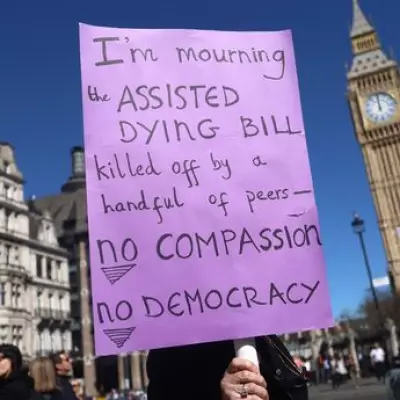 I'm mourning
the ASSISTED
DYING BILL
killed off by a
handful of peers—
no COMPASSION
no DEMOCRACY